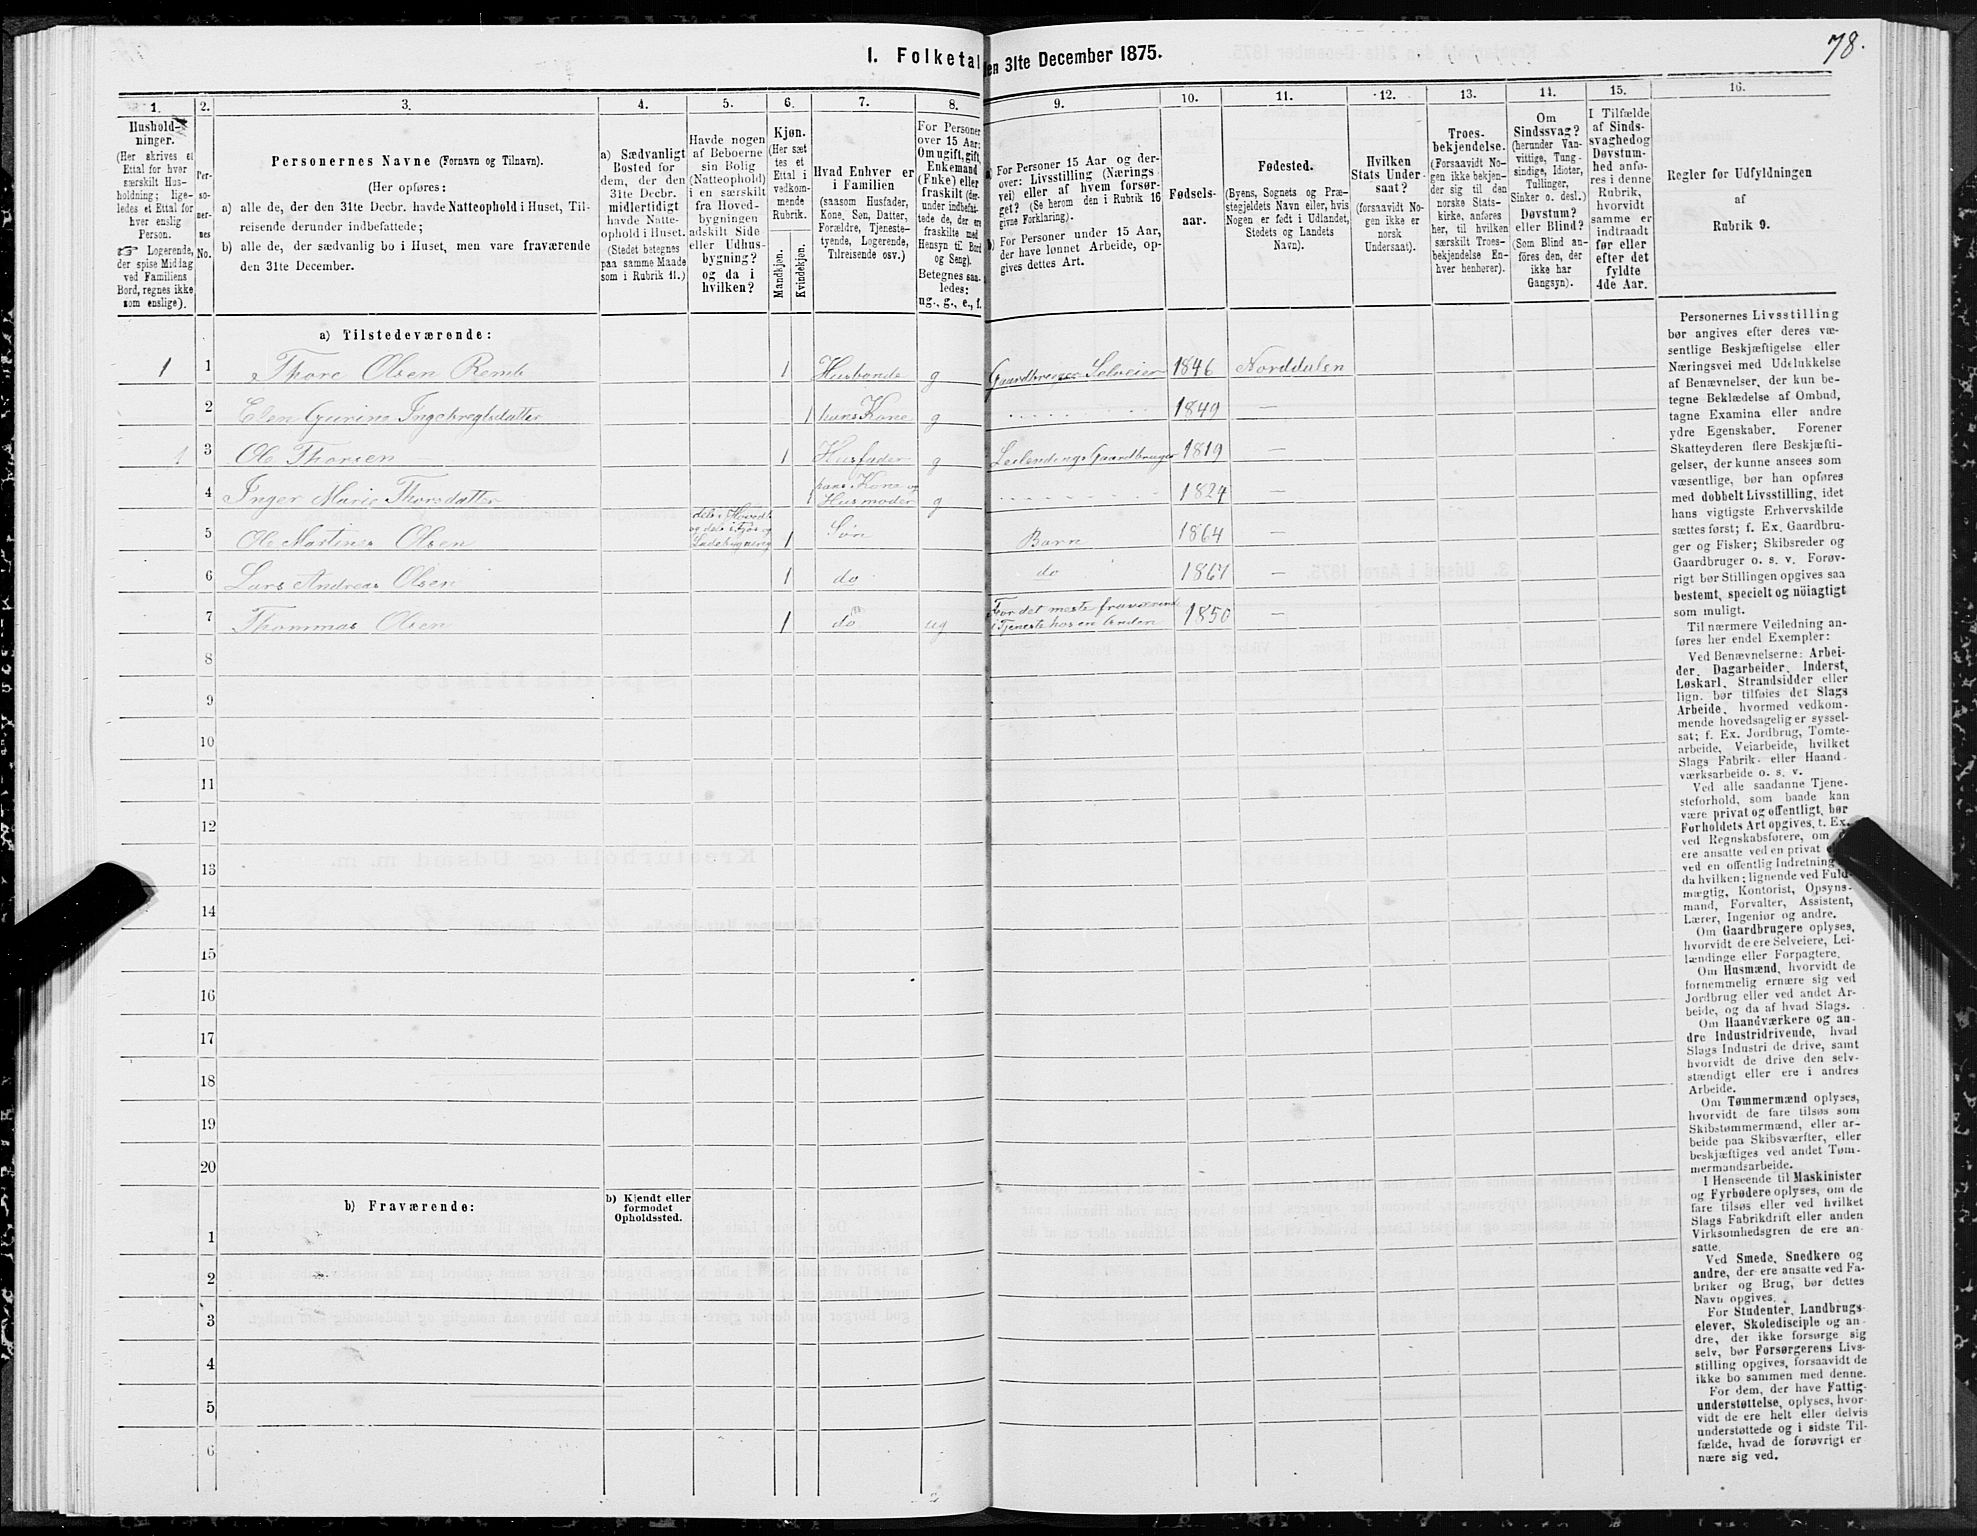 78.
I. Folketal den 31te December 1875.
1. 2. 3. 4. 5. 6. 7. 8. 9. 10. 11. 12. 13. 14. 15. 16.
Hushold-
ninger.
(Her skrives et
Ettal for hver
særskilt Hus-
holdning; lige-
ledes et Ettal for
hver enslig
Person.
☞ Logerende,
der spise Middag
ved Familiens
Bord, regnes ikke
som enslige).
Per-
so-
ner-
nes
No.
Personernes Navne (Fornavn og Tilnavn).
(Her opføres:
a) alle de, der den 31te Decbr. havde Natteophold i Huset, Til-
reisende derunder indbefattede;
b) alle de, der sædvanlig bo i Huset, men vare fraværende
den 31te December.
a) Sædvanligt
Bosted for
dem, der den
31te Decbr.
midlertidigt
havde Natte-
ophold i Huset.
(Stedet betegnes
paa samme Maade
som i Rubrik 11.)
Havde nogen
af Beboerne
sin Bolig
(Natteophold)
i en særskilt
fra Hoved-
bygningen
adskilt Side
eller Udhus-
bygning?
og da i
hvilken?
Kjøn.
(Her sæt
tes et
Ettal i
vedkom-
mende
Rubrik.
Mandkjøn.
Kvindekjøn.
Hvad Enhver er
i Familien
(saasom Husfader,
Kone, Søn, Datter,
Forældre, Tjeneste-
tyende, Logerende,
Tilreisende osv.)
For Personer
over 15 Aar:
Om ugift, gift,
Enkemand
(Enke) eller
fraskilt (der-
under indbefat-
tede de, der ere
fraskilte med
Hensyn til Bord
og Seng).
Betegnes saa-
ledes:
ug., g., e., f.
a) For Personer 15 Aar og der-
over: Livsstilling (Nærings
vei) eller af hvem forsør-
get? (Se herom den i Rubrik 16
givne Forklaring).
b) For Personer under 15 Aar,
der have lønnet Arbeide, op-
gives dettes Art.
Fødsels-
aar.
Fødested.
(Byens, Sognets og Præ-
stegjeldets Navn eller, hvis
Nogen er født i Udlandet,
Stedets og Landets
Navn).
Hvilken
Stats Under-
saat?
(forsaavidt No-
gen ikke er
norsk
Undersaat).
Troes-
bekjendelse.
(Forsaavidt No-
gen ikke bekjen-
der sig til den
norske Stats-
kirke, anføres
her, til hvilken
særskilt Troes-
bekjendelse En-
hver henhører).
Om
Sindssvag?
(herunder Van-
vittige, Tung-
sindige, Idioter,
Tullinger,
Sinker o. desl.)
Døvstum?
eller Blind?
(Som Blind an-
føres den, der
ikke har
Gangsyn).
I Tilfælde
af Sinds-
svaghed og
Døvstum-
hed anfø-
res i denne
Rubrik,
hvorvidt
samme er
indtraadt
før eller
efter det
fyldte
4de Aar.
Regler for Udfyldningen
af
Rubrik 9.
a) Tilstedeværende:
1 1 Thore Olsen Remb 1 Husbonde g Gaardbruger Selveier 1846 Norddalen
2 Elen Gurine Ingebregtsdatter 1 hans Kone g 1849 —
1 3 Ole Thorsen 1 Husfader g Leilendings Gaardbruger 1819 —
4 Inger Marie Thorsdatter 1 hans Kone og
Husmoder g 1824 —
5 Ole Martinus Olsen 1 Søn Barn 1864 —
6 Lars Andreas Olsen 1 do do 1867 —
7 Thommas Olsen 1 do ug For det meste fraværende
i Tjeneste hos en Anden 1850 —
8
9
10
11
12
13
14
15
16
17
18
19
20
b) Fraværende:
b) Kjendt eller
formodet
Opholdssted.
1
2
3
4
5
6
Personernes Livsstilling
bør angives efter deres væ-
sentlige Beskjæftigelse eller
Næringsvei med Udelukkelse
af Benævnelser, der kun be-
tegne Beklædelse af Ombud,
tagne Examina eller andre
ydre Egenskaber. Forener
Skatteyderen flere Beskjæfti-
gelser, der kunne ansees som
væsentlige, bør han opføres
med dobbelt Livsstilling, idet
hans vigtigste Erhvervskilde
sættes først; f. Ex. Gaardbru-
ger og Fisker; Skibsreder og
Gaardbruger o. s. v. Forøv-
rigt bør Stillingen opgives saa
bestemt, specielt og nöiagtigt
som muligt.
Til nærmere Veiledning an-
føres her endel Exempler:
Ved Benævnelserne: Arbei-
der, Dagarbeider, Inderst,
Løskarl, Strandsidder eller
lign. bør tilføies det Slags
Arbeide, hvormed vedkom-
mende hovedsagelig er syssel-
sat; f. Ex. Jordbrug, Tomte-
arbeide, Veiarbeide, hvilket
Slags Fabrik- eller Haand-
værksarbeide o. s. v.
Ved alle saadanne Tjene-
steforhold, som baade kan
være privat og offentligt, bør
Forholdets Art opgives, t. Ex.
ved Regnskabsførere, om
ere ansatte ved en privat
ved en offentlig Indretning
da hvilken; lignende ved Fuld-
mægtig, Kontorist, Opsyns-
mand, Forvalter, Assistent,
Lærer, Ingeniør og andre.
Om Gaardbrugere oplyses,
hvorvidt de ere Selveiere, Lei-
lændinge eller Forpagtere.
Om Husmænd, hvorvidt de
fornemmelig ernære sig ved
Jordbrug eller ved andet Ar-
beide, og da af hvad Slags.
Om Haandværkere og an-
dre Industridrivende, hvad
Slags Industri de drive, samt
hvorvidt de drive den selv-
stændigt eller ere i andres
Arbeide.
Om Tømmermænd oplyses,
hvorvidt de fare tilsøs som
Skibstømmermænd, eller ar-
beide paa Skibsværfter, eller
beskjæftiges ved andet Tøm-
mermandsarbeide.
I Henseende til Maskinister
og Fyrbødere oplyses, om de
fare tilsøs eller ved hvilket
Slags Fabrikdrift eller anden
Virksomhedsgren de ere an-
satte.
Ved Smede, Snedkere og
andre, der ere ansatte ved Fa-
briker og Brug, bør dettes
Navn opgives.
For Studenter, Landbrugs-
elever, Skoledisciple og an-
dre, der ikke forsørge sig
selv, bør Forsørgerens Livs-
stilling opgives, forsaavidt de
ikke bo sammen med denne.
For dem, der have Fattig-
understøttelse, oplyses, hvor-
vidt de ere helt eller delvis
understøttede og i sidste Til-
fælde, hvad de forøvrigt er
nære sig ved.